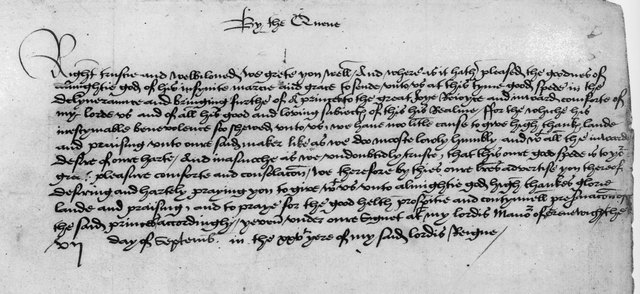 By the Quene
Right trustie and welbiloved, we grete you well, And where as it hath pleased the goodnes of
almightie god of his infynite marcie and grace to sende unto us at this tyme good spede in the
delyveraunce and bringing furthe of a princes to the great Joye Rejoyce and inward comforte of
my lorde us and of all his good and loving subiectes of this his Realme, For the whiche his
inestymable benevolence soo shewed unto us, we have noo litle cause to give high thankes laude
and praising unto oure said maker like as we doo mooste lowly humbly and wt all the inward
desire of oure harte, And inasmuche as we undoubtedly truste, that this oure good spede is to yor
great pleasure comforte and consolacon, we therefore by thies oure lres advertise you thereof
desiring and hartely praying you to give wt us unto almightie god high thankes glorie
laude and praising, and to praye for the good helth prosperite and contynuell preservacon of
the said princes accordingly, yeven under oure Signet at my lordis Manor of Grenewiche the
vij day of Septembr, in the xxvth yere of my said lordis Reigne,